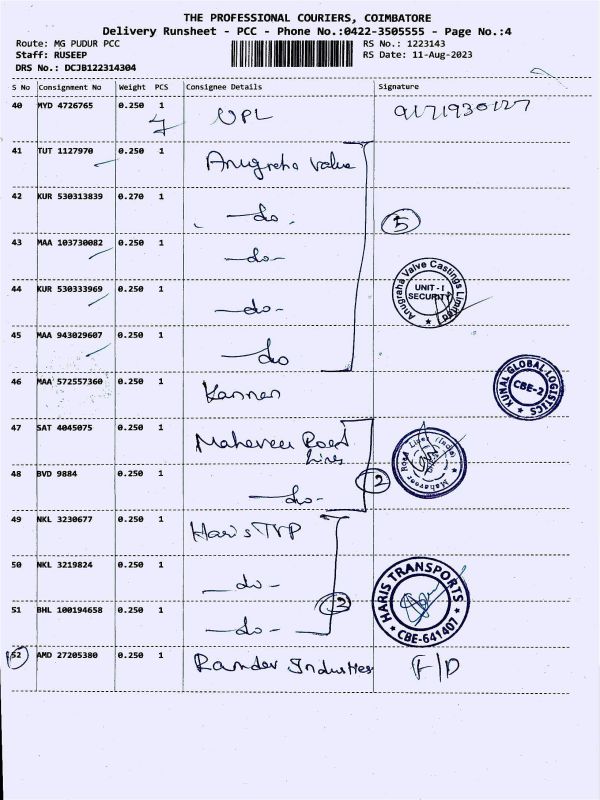 THE PROFESSIONAL COURIERS, COIMBATORE
Delivery Runsheet - PCC - Phone No.:0422-3505555 - Page No.:4
Route: MG PUDUR PCC RS No.: 1223143
Staff: RUSEEP RS Date: 11-Aug-2023
DRS No.: DCJB122314304
S No Consignment No Weight PCS Consignee Details Signature
40 MYD 4726765 0.250 1 UPL
41 TUT 1127970 0.250 1 Anugraha Valve
42 KUR 530313839 0.270 1 -do- 5
43 MAA 103730082 0.250 1 -do-
44 KUR 530333969 0.250 1 -do- Anugraha Valve Castings Limited UNIT - I SECURITY
45 MAA 943029607 0.250 1 -do
46 MAA 572557360 0.250 1 Kannan KUNAL GLOBAL LOGISTICS CBE-2
47 SAT 4045075 0.250 1 Mahaveer Road
Lines Mahaveer Road Lines (India)
48 BVD 9884 0.250 1 -do- 2
49 NKL 3230677 0.250 1 Haris TVP
50 NKL 3219824 0.250 1 -do-
51 BHL 100194658 0.250 1 -do- 3 HARIS TRANSPORTS CBE-641407
52 AMD 27205380 0.250 1 Ramdev Industries F/D